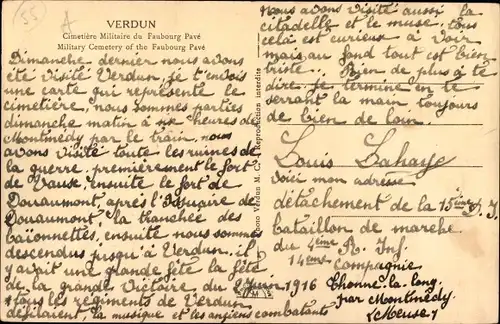 (55)
A
VERDUN
Cimetière Militaire du Faubourg Pavé
Military Cemetery of the Faubourg Pavé
Dimanche dernier nous avons
été visité Verdun, je t'envois
une carte qui représente le
cimetière, nous sommes parties
dimanche matin à six heures de
Montmédy par le train, nous
avons visité toute les ruines de
la guerre, premièrement le fort
de Vaux, ensuite le fort de
Douaumont, après l'
Douaumont la tranchée des
baïonnettes, ensuite nous sommes
descendus jusqu'à Verdun, il
y avait une grande fête la fête
de la grande Victoire, du 1916
tous les régiments de Verdun
défilaient, la musique et les anciens combatants
Verdun M. C. Reproduction interdite
Nous avons visité aussi la
citadelle et le muse. tous
cela est curieux à voir
mais au fond tout est bien
triste.. Rien de plus à te
dire. je termine en te
serrant la main, toujours
de bien de loin.
Louis Lahaye
voici mon adresse
détachement de la 15ème D. I.
bataillon de marche
du 4ème R. Inf.
14ème compagnie
Thonne-la-long
par Montmédy
(Meuse)